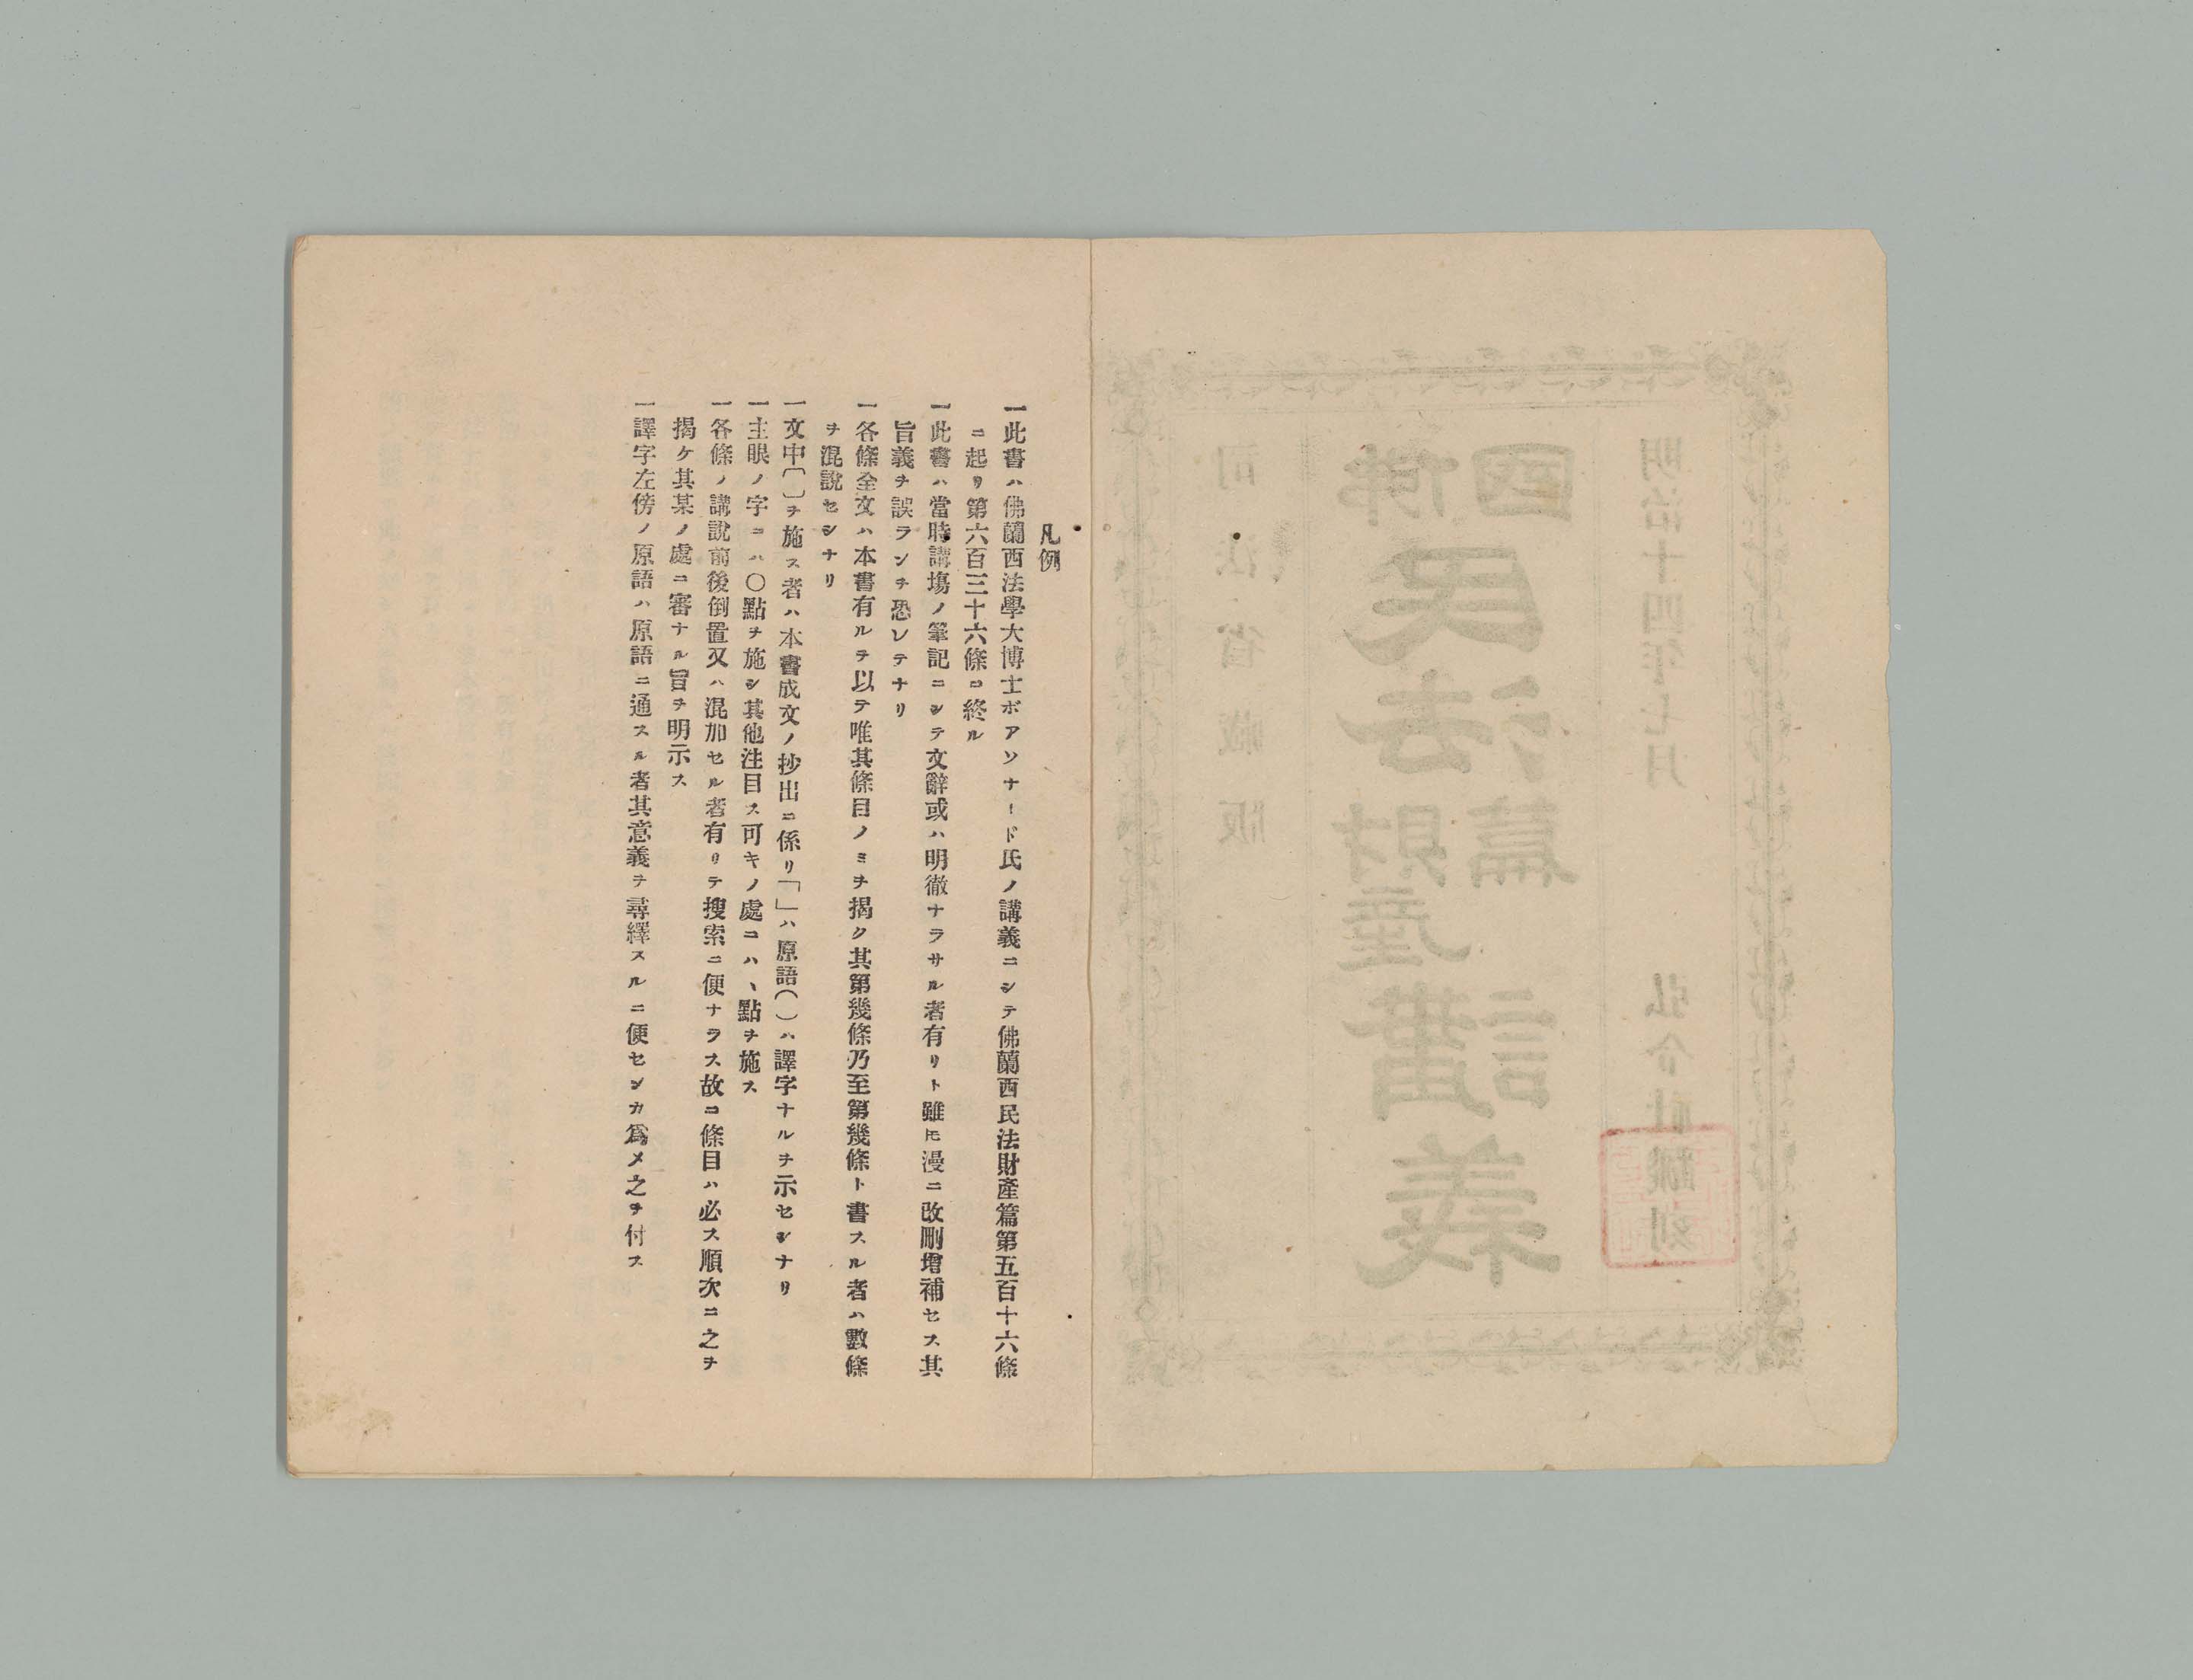 凡例
一此書ハ佛蘭西法學大博士ボアソナード氏ノ講義ニシテ佛蘭西民法財產篇第五百十六條
ニ起リ第六百三十六條ニ終ル
一此書ハ當時講塲ノ筆記ニシテ文辭或ハ明徹ナラサル者有リト雖モ漫ニ改刪增補セス其
旨義ヲ誤ランヲ恐レテナリ
一各條全文ハ本書有ルヲ以テ唯其條目ノミヲ揭ク其第幾條乃至第幾條ト書スル者ハ數條
ヲ混說セシナリ
一文中〔〕ヲ施ス者ハ本書成文ノ抄出ニ係リ「」ハ原語()ハ譯字ナルヲ示セシナリ
一主眼ノ字ニハ○點ヲ施シ其他注目ス可キノ處ニハ、點ヲ施ス
一各條ノ講說前後倒置又ハ混加セル者有リテ搜索ニ便ナラス故ニ條目ハ必ス順次ニ之ヲ
揭ケ其某ノ處ニ審ナル旨ヲ明示ス
一譯字左傍ノ原語ハ原語ニ通スル者其意義ヲ尋繹スルニ便センカ爲メ之ヲ付ス
明治十四年七月 弘令社飜刻
佛國民法財產篇講義
司法省藏版